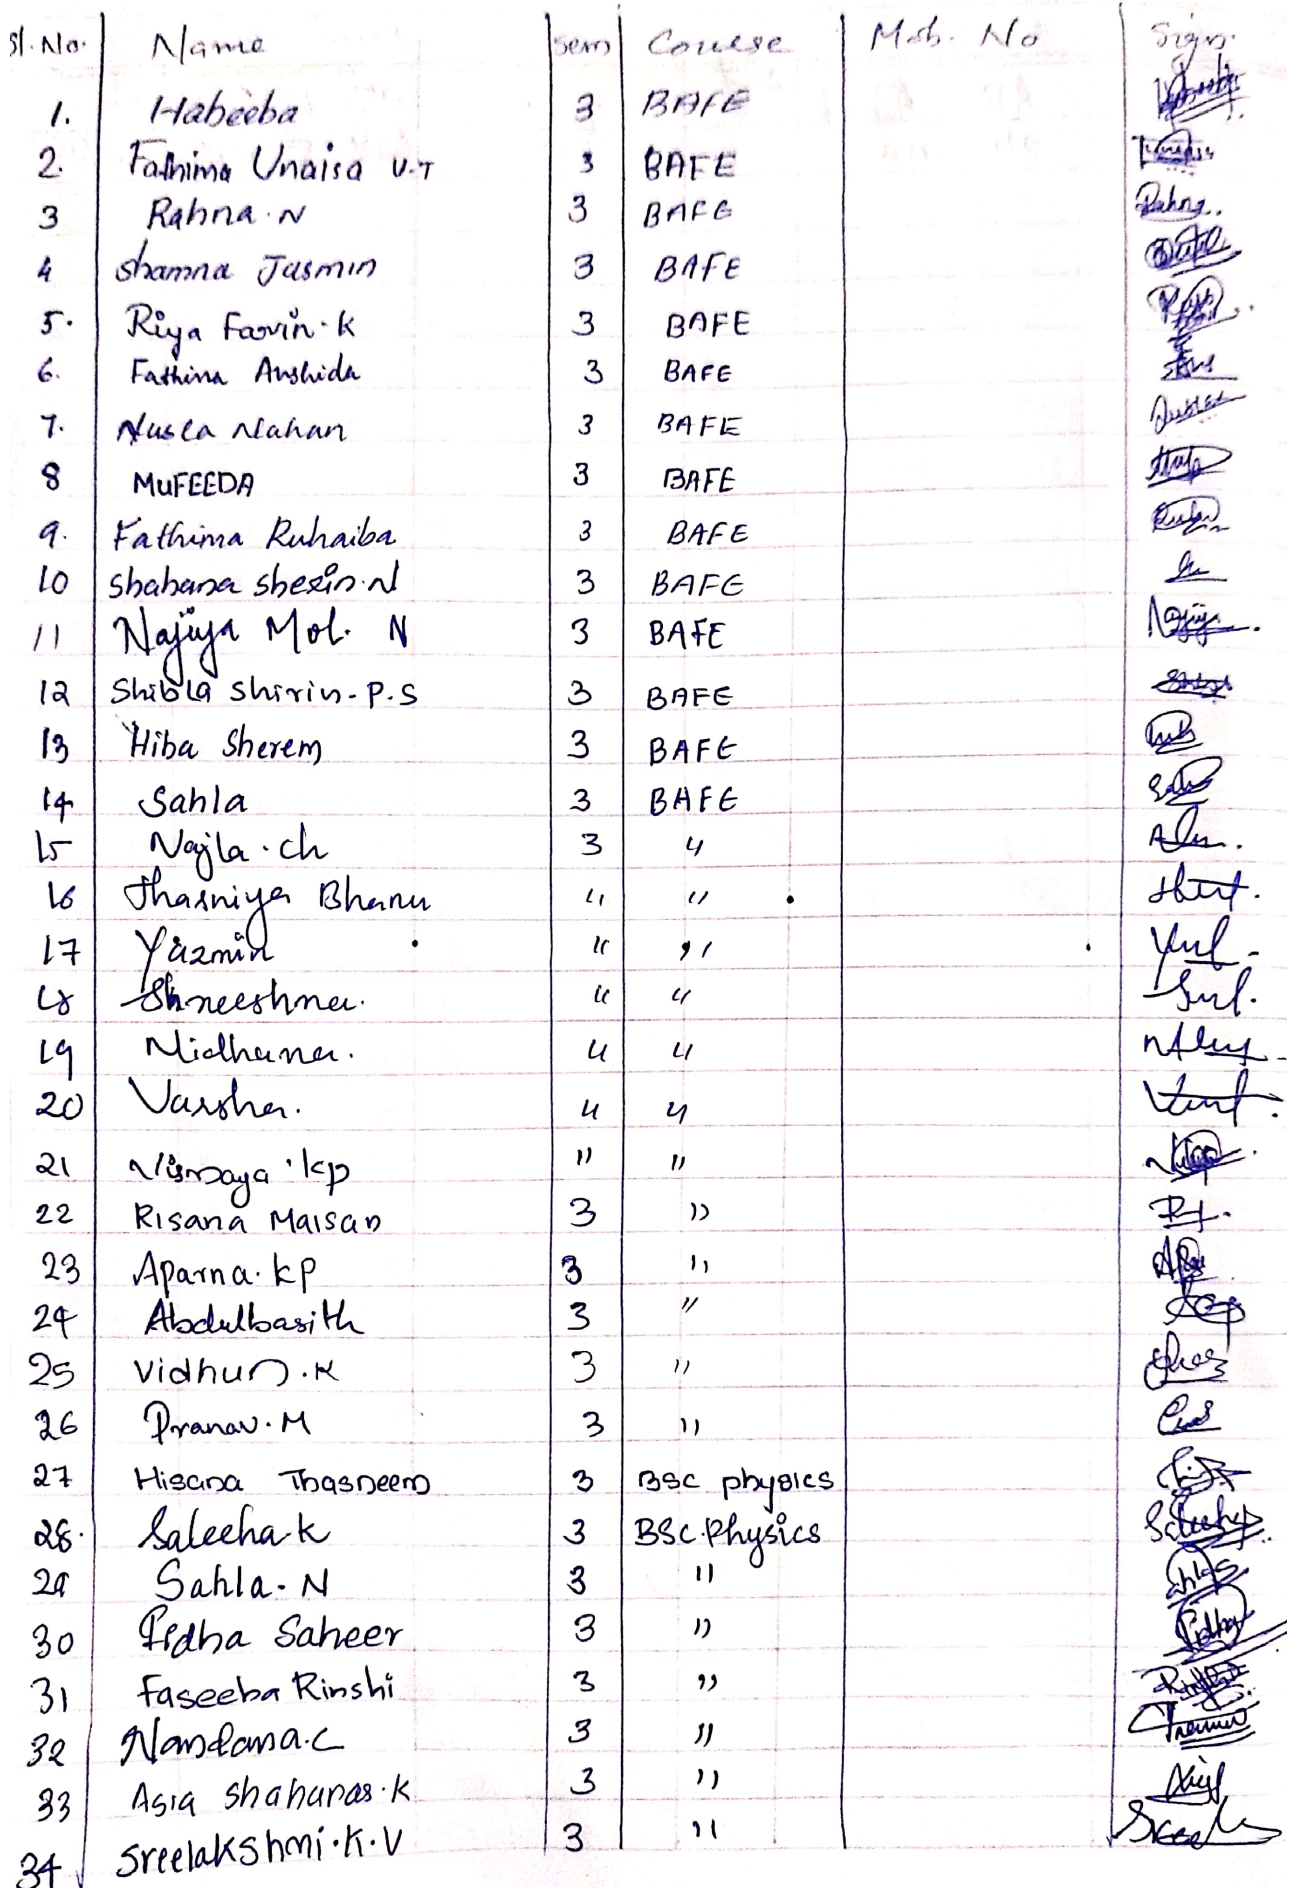 Sl. No. Name Sem Course Mob. No Sign.
1. Habeeba 3 BAFE
2. Fathima Unaisa V.T 3 BAFE
3 Rahna. N 3 BAFE Rahna..
4 Shamna Jasmin 3 BAFE
5. Riya Farvin. K 3 BAFE
6. Fathima Anshida 3 BAFE
7. Nusla Nahan 3 BAFE
8 MUFEEDA 3 BAFE
9. Fathima Ruhaiba 3 BAFE
10 Shabana Sherin. N 3 BAFE
11 Najiya Mol. N 3 BAFE Najiya.
12 Shibla Shirin - P.S 3 BAFE
13 Hiba Sherem 3 BAFE
14 Sahla 3 BAFE
15 Najla. ch 3 "
16 Thasniya Bhanu " "
17 Yazmin " "
18 Shneeshna. " "
19 Nidhana. " "
20 Varsha. " "
21 Vismaya. kp " "
22 Risana Maisan 3 "
23 Aparna. kp 3 "
24 Abdulbasith 3 "
25 Vidhun. K 3 "
26 Pranav. M 3 "
27 Hisana Thasneem 3 BSC physics
28. Saleeha. K 3 BSC. Physics
29 Sahla. N 3 "
30 Fidha Saheer 3 " Fidha
31 Faseeba Rinshi 3 "
32 Nandana. C 3 "
33 Asia Shahanas. K 3 "
34 Sreelakshmi. K. V 3 "